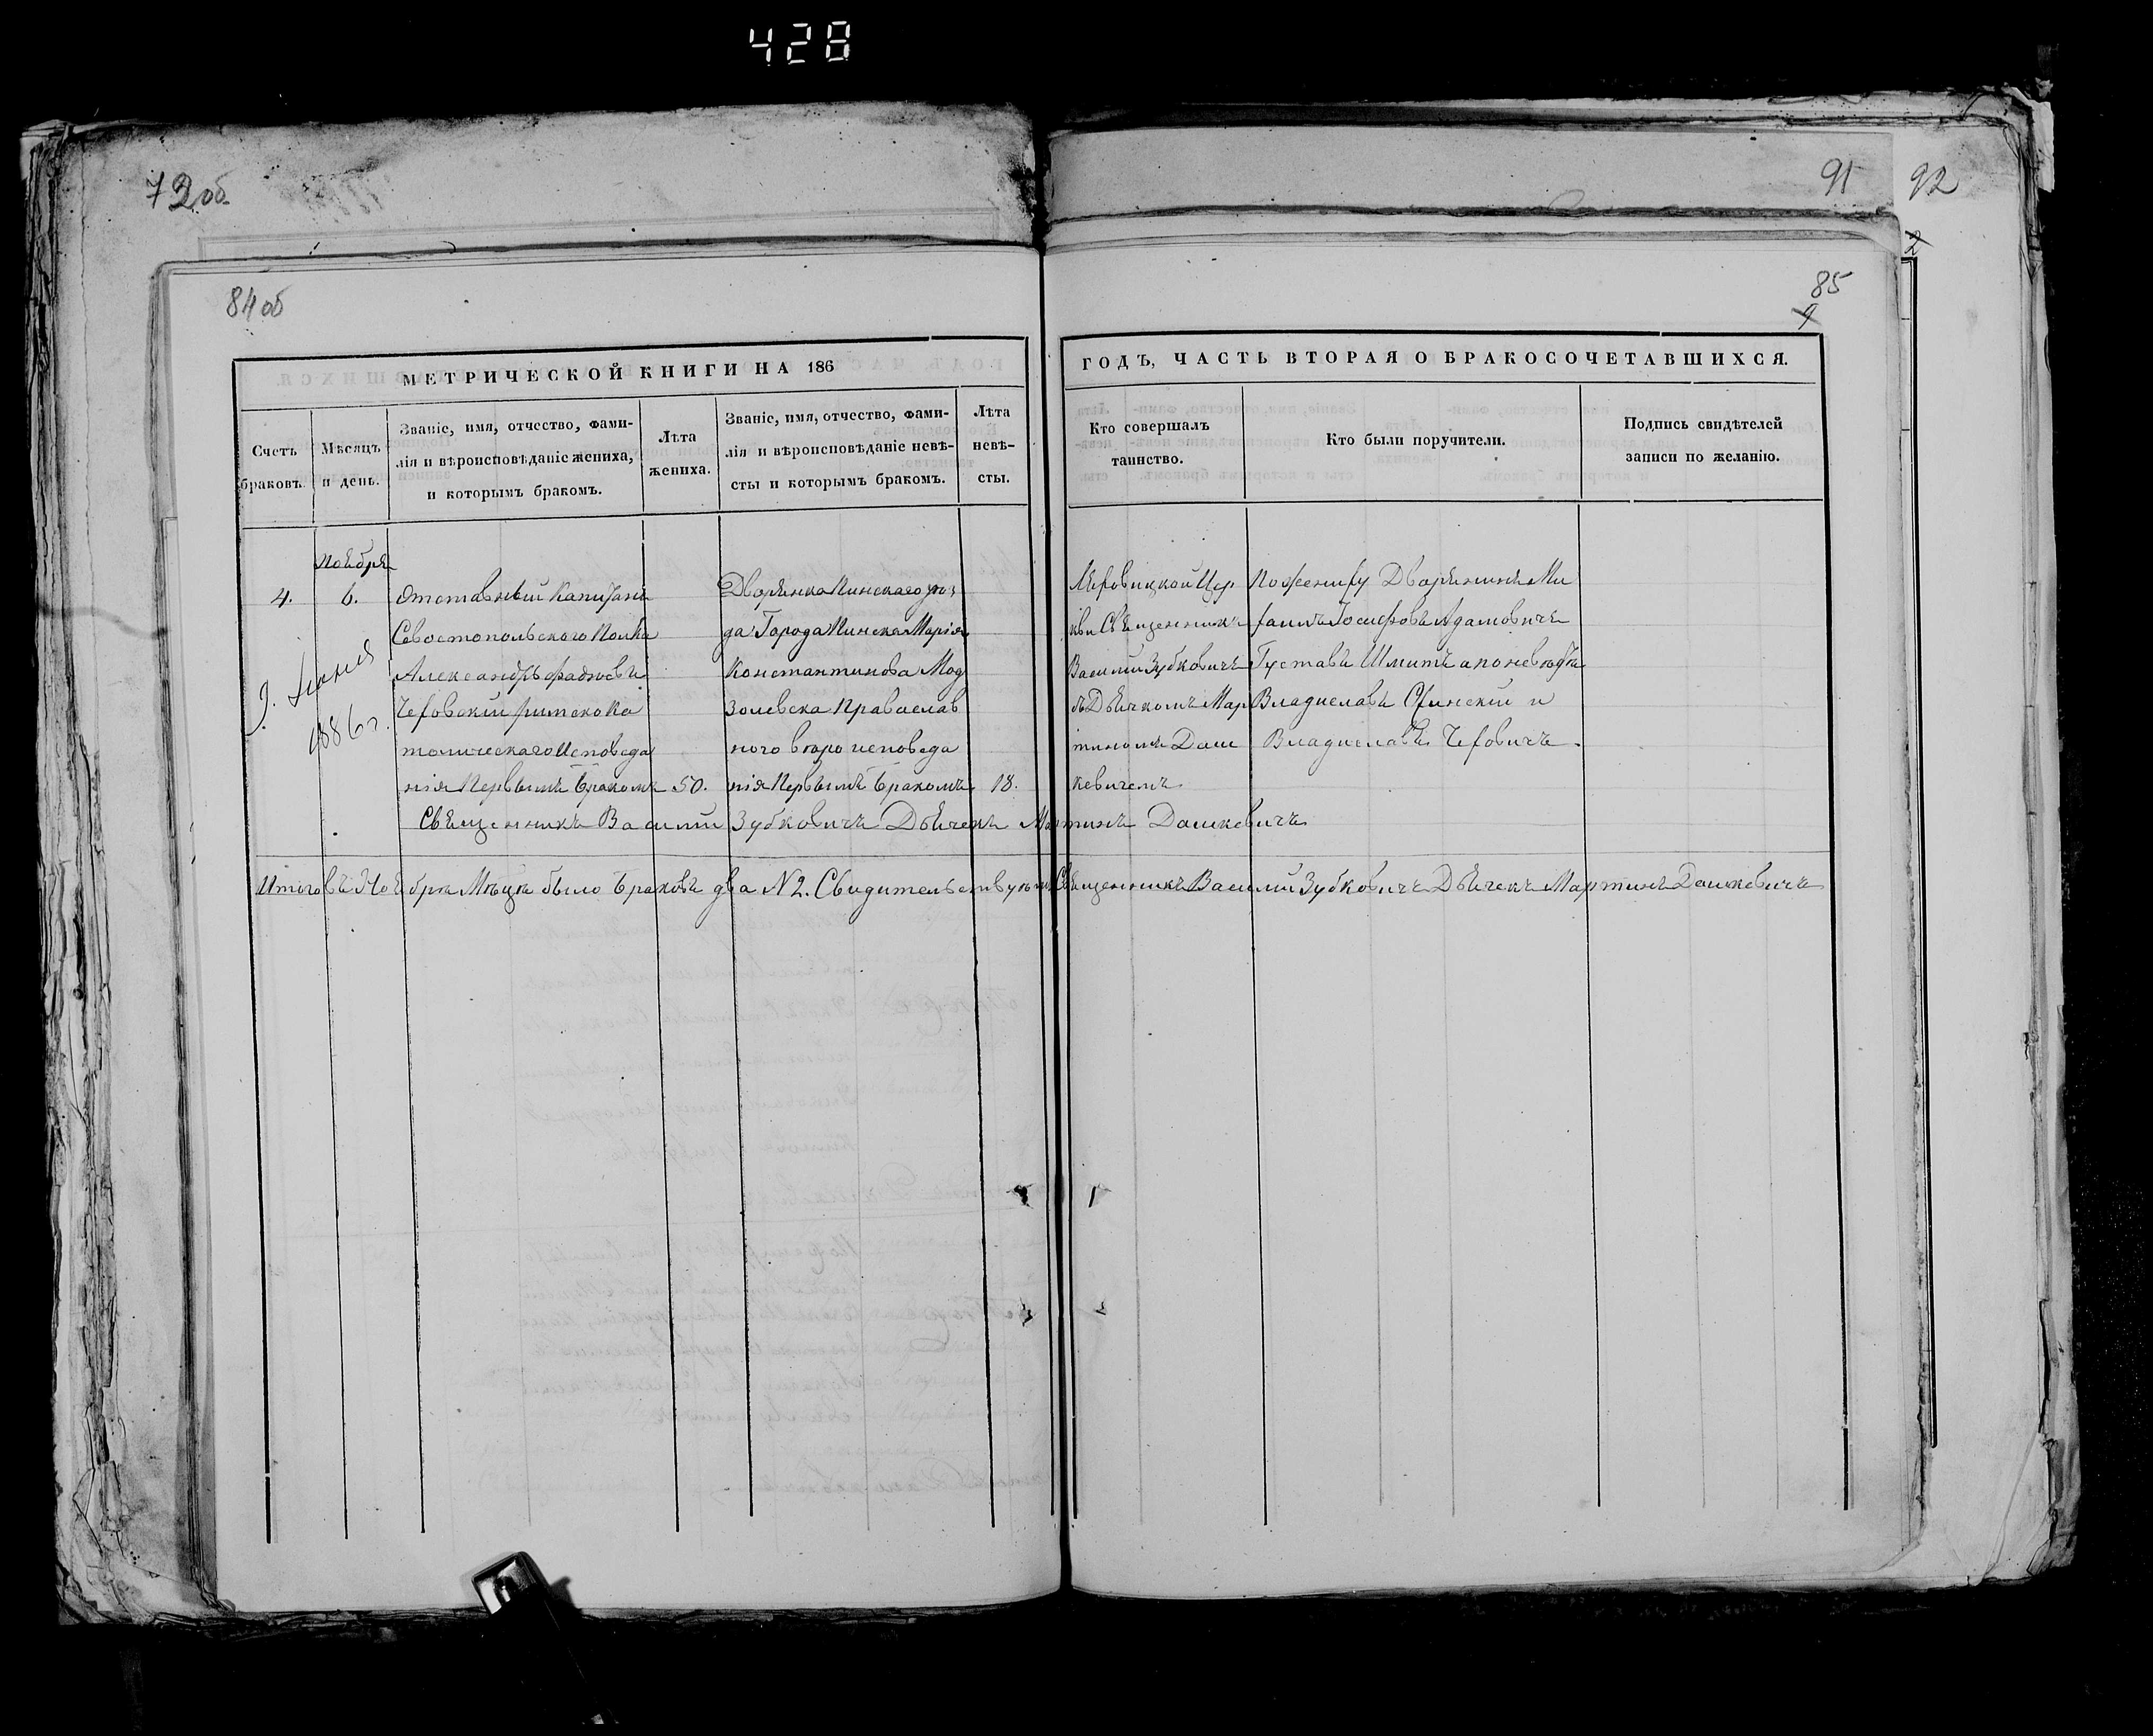 428
72об.
91
92
2
84 об
85
9
МЕТРИЧЕСКОЙ КНИГИ НА 186
ГОДЪ, ЧАСТЬ ВТОРАЯ О БРАКОСОЧЕТАВШИХСЯ.
Счетъ
браковъ.
Мѣсяцъ
и день.
Званіе, имя, отчество, фами-
лія и вѣроисповѣданіе жениха,
и которымъ бракомъ.
Лѣта
жениха.
Званіе, имя, отчество, фами-
лія и вѣроисповѣданіе невѣ-
сты и которымъ бракомъ.
Лѣта
невѣ-
сты.
Кто совершалъ
таинство.
Кто были поручители.
Подпись свидѣтелей
записи по желанію.
4.
Ноября
6.
9. Июня
1886 г.
Отставный Капитанъ
Севостопольского Полка
Александръ
Чеховский Римско Ка
толическаго Исповеда
нія Первымъ Бракомъ
50.
Дворянка Пинскаго уѣз
да Города Пинска Марія
Константинова Мод
золевска Православ
ного вѣро исповеда
нія Первымъ Бракомъ
18.
Цер
кви Священникъ
Василий Зубковичъ
съ Дьячкомъ Мар
тиномъ Даш
кевичемъ
По жениху Дворянинъ Ми
хаилъ Иосифовъ Адамовичъ
Густавъ Шмитъ а по невѣстѣ
Владиславъ и
Владиславъ Чеховичъ.
Священникъ Василий Зубковичъ Дьячекъ Мартинъ Дашкевичъ
Итого въ Ноябрѣ Мѣцѣ было Браковъ два N 2. Священникъ Василий Зубковичъ Дьячекъ Мартинъ Дашкевичъ